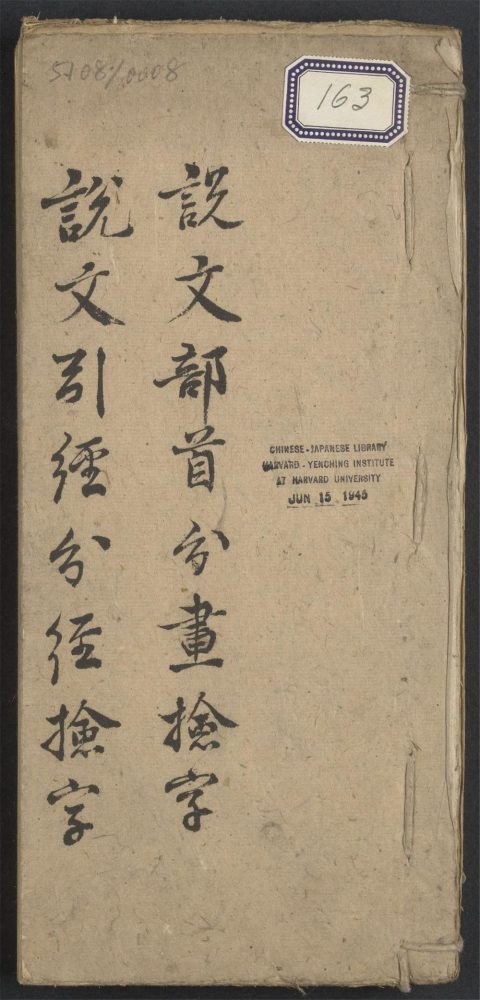 5708/0008
163
説文部首分畫撿字
説文引經分徑撿字
CHINESE-JAPANESE LIBRARY
HARVARD-YENCHING INSTITUTE
AT HARVARD UNIVERSITY
JUN 15 1945